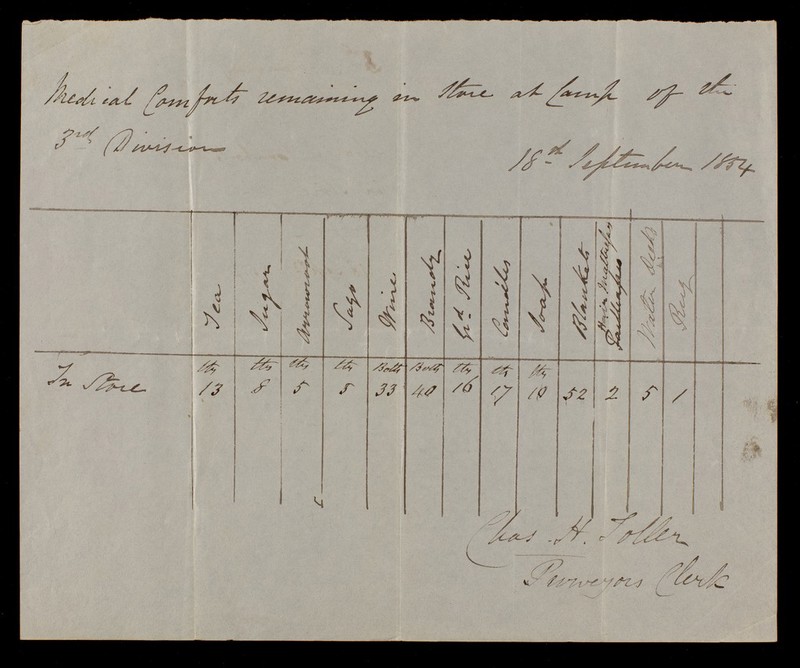 Medical Comforts remaining in Store at Camp of the
3rd Division
18th September 1854
Tea Sugar Arrowroot Sago Wine Brandy Gd Rice Candles Soap Blankets Hair Mattresses Paillasses Water Beds Rug
lbs lbs lbs lbs Bottls Bottls lbs lbs lbs
In Store 13 8 5 5 33 40 16 17 10 52 2 5 1
Chas. H. Toller
Purveyors Clerk